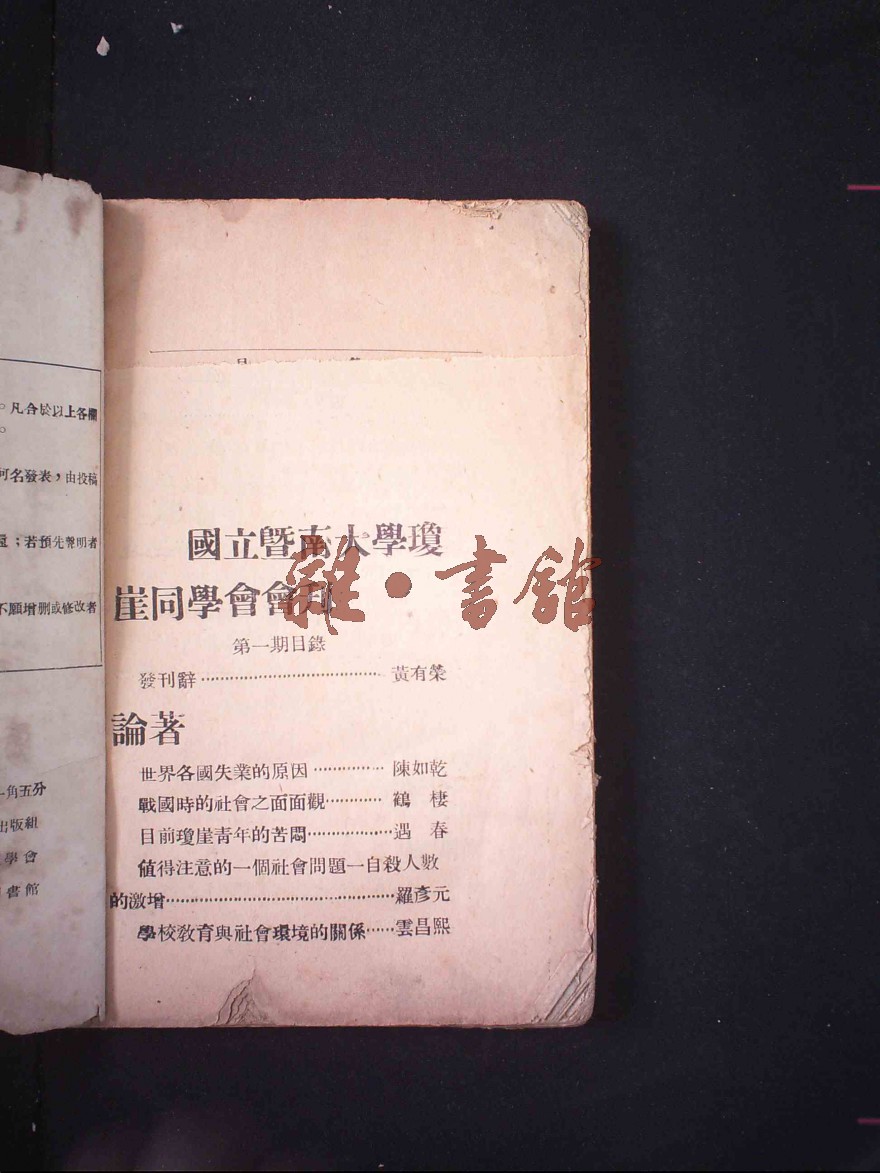 。凡合於以上各欄
。
何名發表，由投稿
；若預先聲明者
不願增刪或修改者
一角五分
出版組
學會
書館
國立曁南大學瓊
崖同學會會刊
第一期目錄
發刊辭⋯⋯⋯⋯⋯⋯⋯⋯⋯⋯⋯ 黃有榮
論著
世界各國失業的原因⋯⋯⋯⋯ 陳如乾
戰國時的社會之面面觀⋯⋯⋯ 鶴 棲
目前瓊崖青年的苦悶⋯⋯⋯⋯⋯遇 春
値得注意的一個社會問題—自殺人數
的激增⋯⋯⋯⋯⋯⋯⋯⋯⋯⋯⋯⋯⋯羅彥元
學校敎育與社會環境的關係⋯⋯雲昌熙
雜·書館